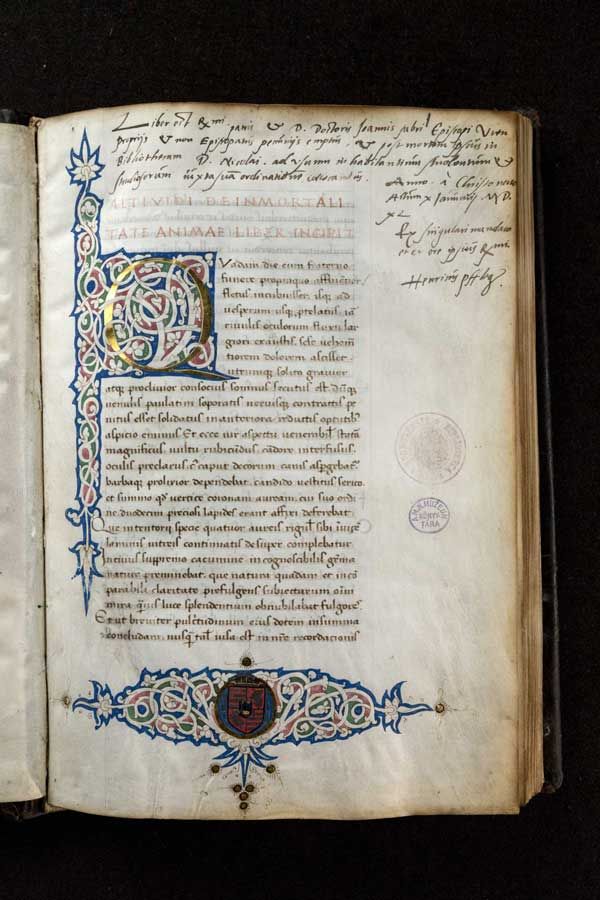 Liber est Rmi patris & D. Doctoris Joannis Fabri Episcopi Vien
proprijs & non Episcopatus pecunijs emptus, & post mortem ipsius in
Bibliothecam D. Nicolai ad usum inhabitantium studentum &
studiosorum iuxta suam ordinationem
Anno à Christo nato
Actum x Januarij M D.
XL
Ex singulari mandato
et ex ore ipsius Rmi
Henricus
ALTIVIDI DE INMORTALI
TATE ANIMAE LIBER INCIPIT
QVadam die cum fraterno
funere propinquo affluentior
fletus incubuisset usq ad
vesperam usq prelatis iã
rivulis oculorum fluxu lar
giori exaustis sese vehem
tiorem dolorem
utrumque solito gravior
atq proclivior consocius somnus secutus est dũq
venulis paulatim soporatis nervisq contractis pe
nitus esset solidatus in anteriora reductis optutibs
aspicio eminus Et ecce vir aspectu venerabil statura
magnificus vultu rubicũdus cãdore interfusus
oculis preclarus caput decorum canis aspgebat
barbaq prolixior dependebat candido vestitus serico
et summo qd vertice coronam auream cui suo ordi
ne duodecim preciosi lapides erant affixi deferebat
Que intentoru specie quatuor aureis sibi
laminis continuatis desuper complebatur
supremo cacumine incognoscibilis gẽma
nature preminebat que natura quadam et incõ
parabili claritate prefulgens subiectarum oĩm
mira luce splendentium obnubilabat fulgore
Et ut breviter pulcritudinum eius dotem in summa
concludam nusq tal visa est in recordationis
A.M.N.MUZEUM
KÖNYV
TÁRA